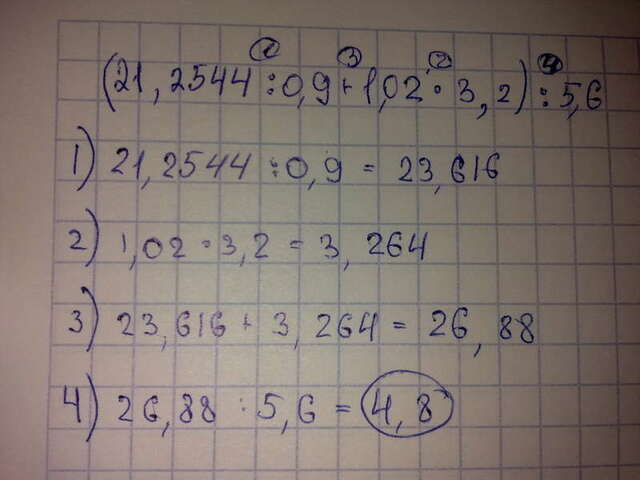 1 3 2 4
(21,2544:0,9+1,02·3,2):5,6
1) 21,2544:0,9=23,616
2) 1,02·3,2=3,264
3) 23,616+3,264=26,88
4) 26,88:5,6=4,8